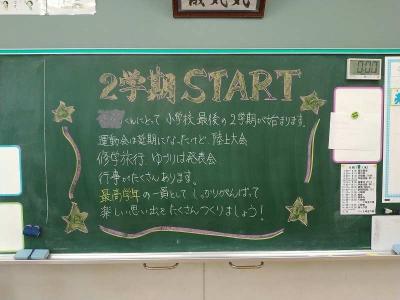 2学期START
くんにとって 小学校 最後の2学期が始まります。
運動会は延期になったけど、陸上大会
修学旅行、ゆづりは発表会
行事がたくさんあります。
最高学年の一員として しっかりがんばって
楽しい思い出をたくさんつくりましょう!